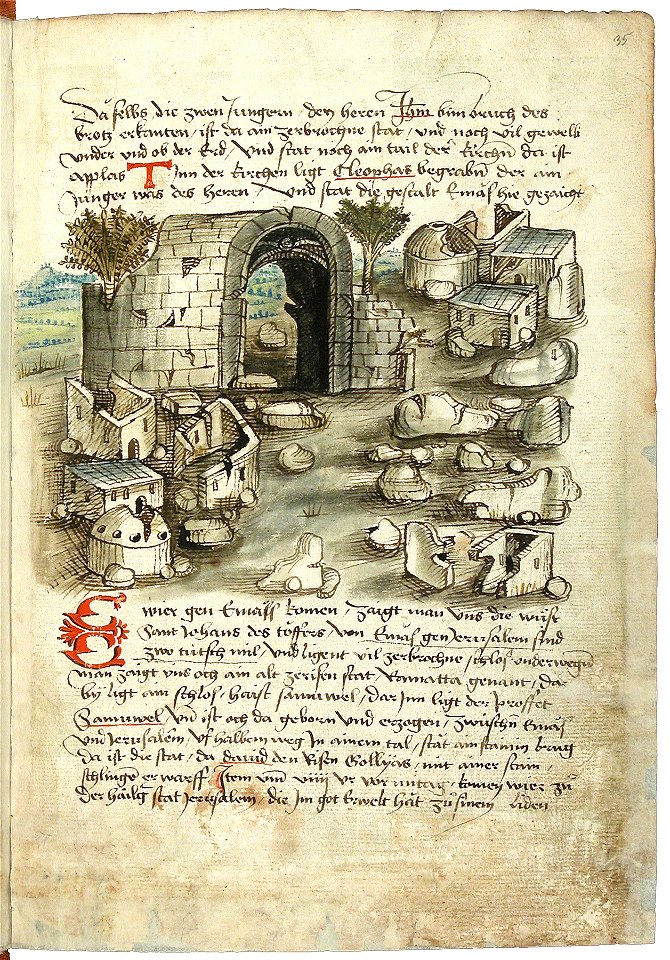 35
Da selbs die zwen Jungern / den heren Jhm bim bruch des
brotz erkanten / ist da ain zerbrochne stat / und noch vil gewelb
under und ob der Erd / Und stat noch ain tail der kirchen da ist
applas Inn der kirchen ligt Cleophas begraben der ain
Junger was des heren / Und stat die gestalt Emas hie gezaicht
E wier gen Emass komen / zaigt man uns die wüst
Sant Johans des töffers / von Emas gen Jerusalem sind
zwo tütsch mil / und ligent vil zerbrochne schlos underwegen
man zaigt uns och ain alt zerisen stat / Ramatta genant / dar
by ligt ain schlos / haist samuwel / dar Inn ligt der proffet
Samuwel Und ist och da geborn und erzogen / zwüschen Emas
und Jerusalem / uf halbem weg In ainem tal / stat ain stainin brug
da ist die stat / da david den Risen Gollyas / mit ainer stain
schlinge er warff Item umm viiii ur vor mitag komen wier zü
Der hailgen stat Jerusalem / die Im got Erwelt hät zü sinem liden